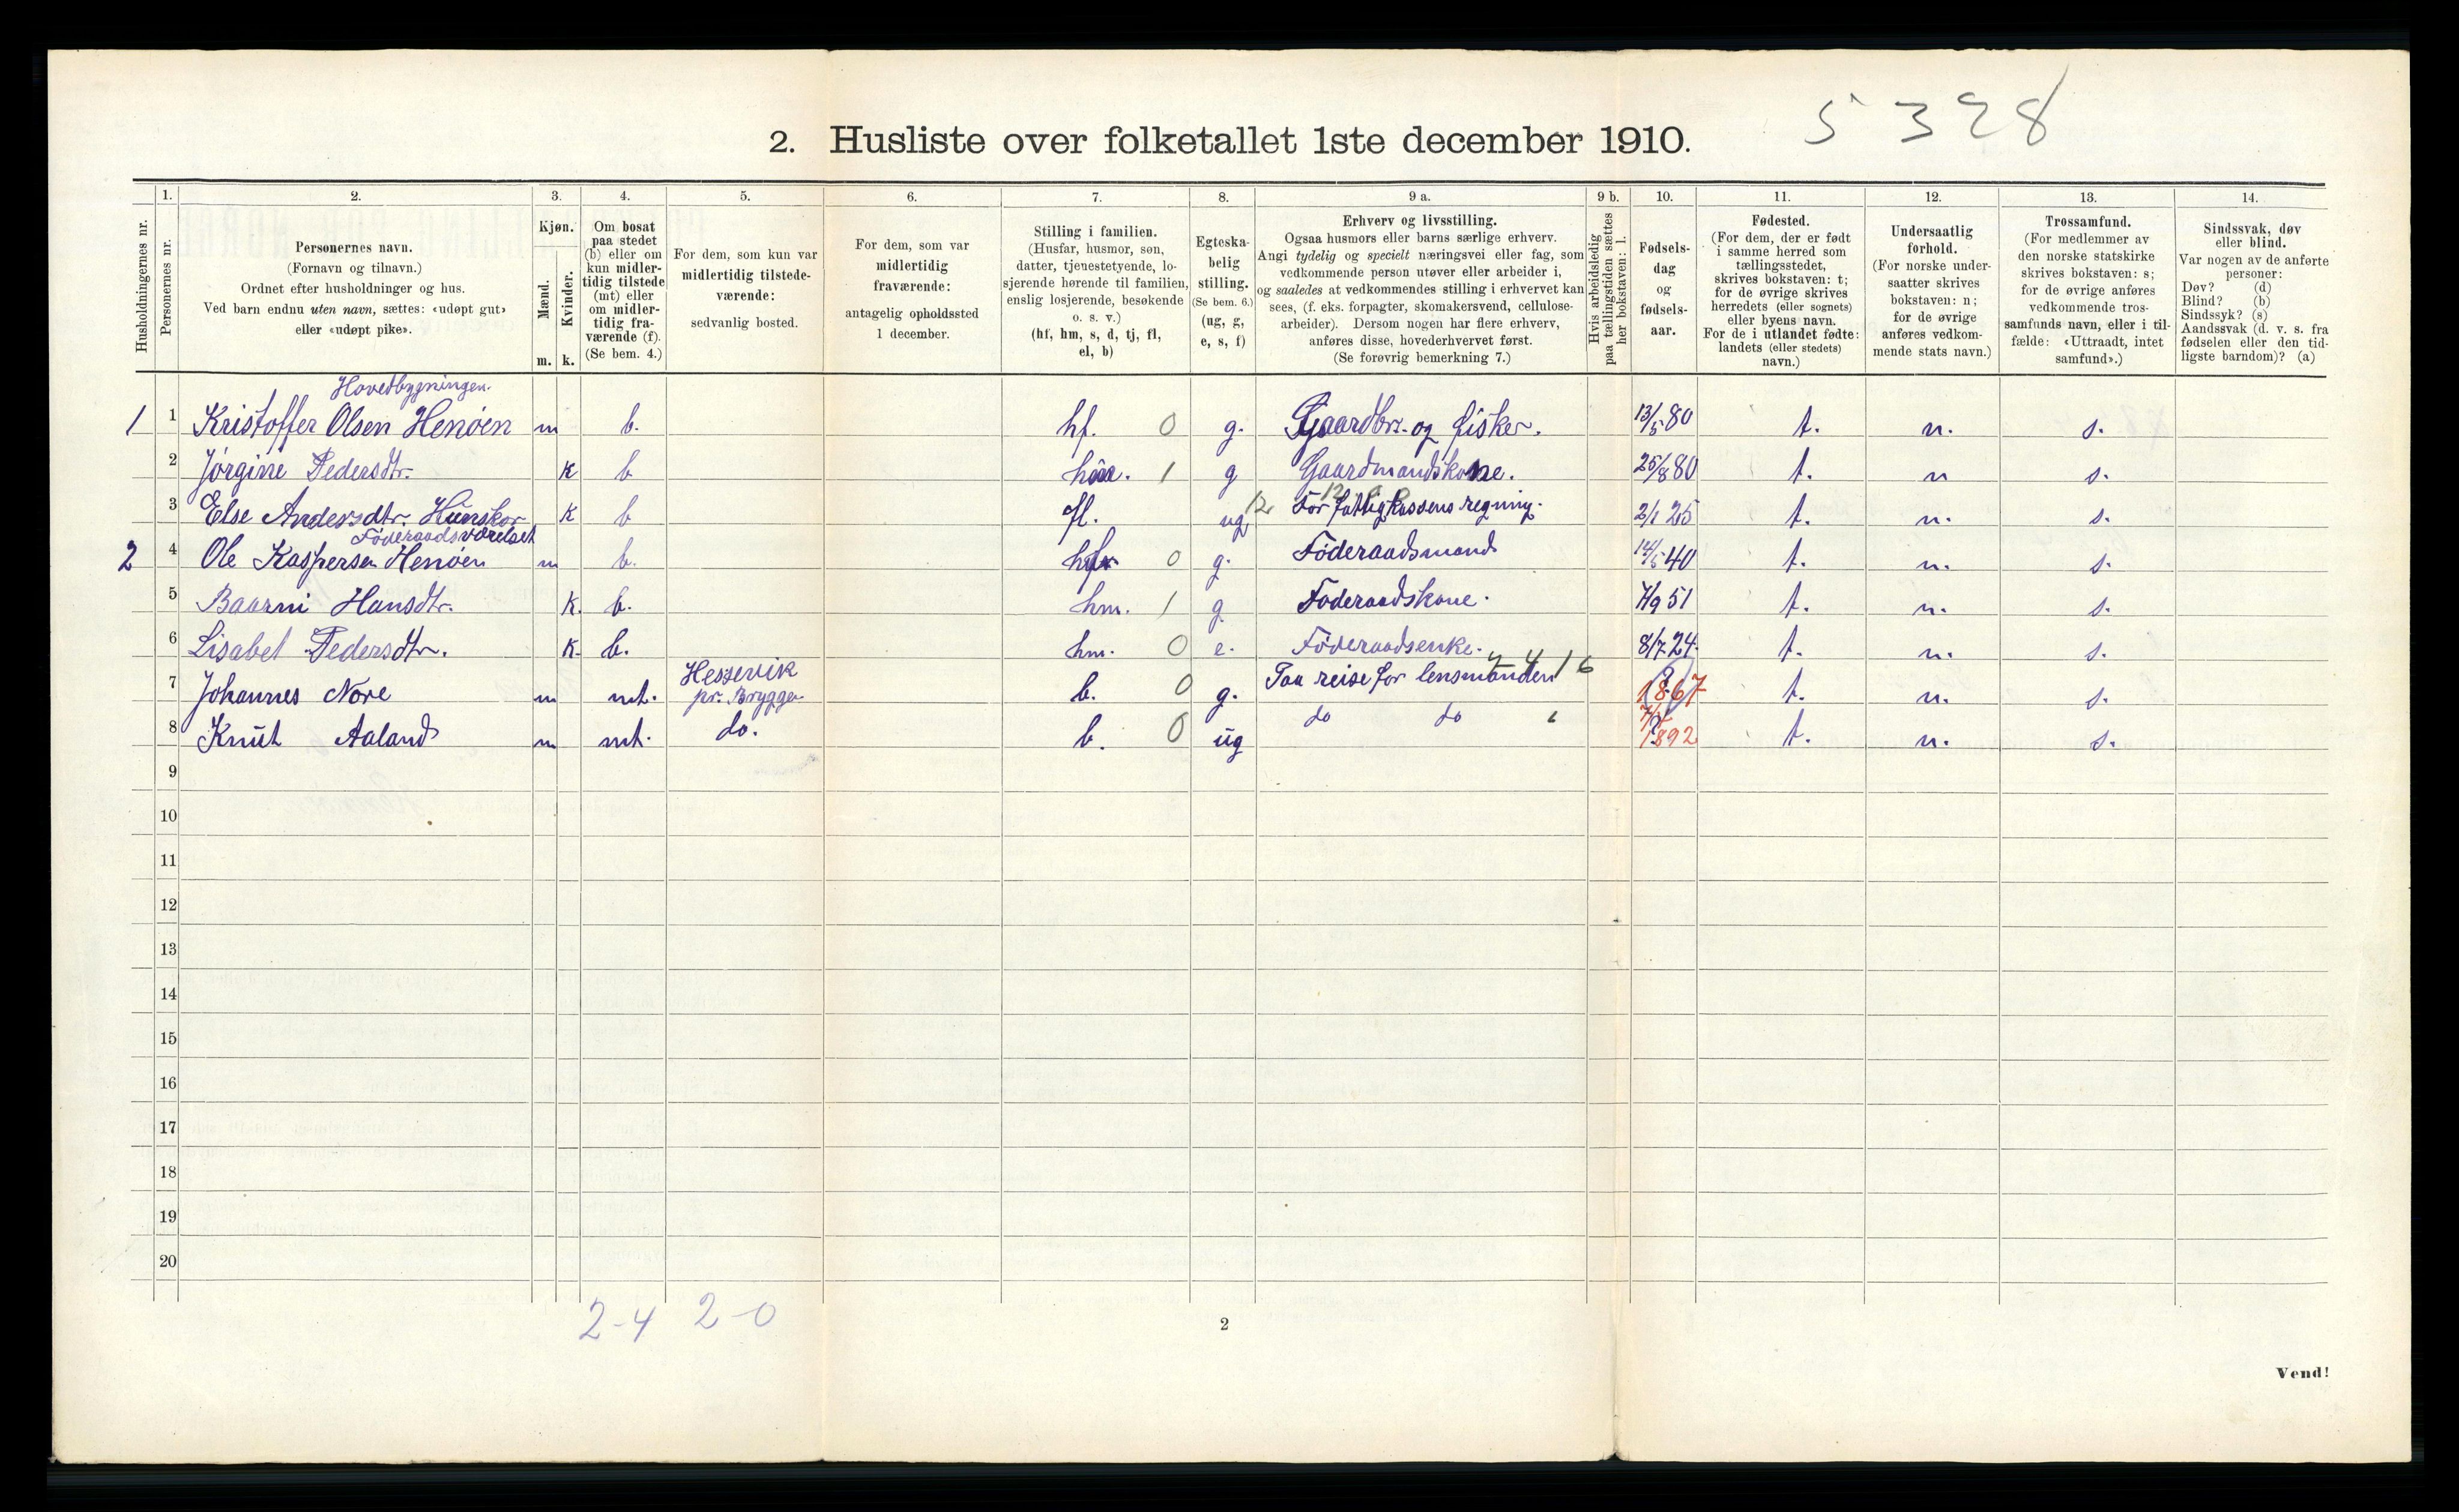 5 328
2. Husliste over folketallet 1ste december 1910.
Husholdningernes nr.
1.
Personernes nr.
2.
Personernes navn.
(Fornavn og tilnavn.)
Ordnet efter husholdninger og hus.
Ved barn endnu uten navn, sættes: «udøpt gut»
eller «udøpt pike».
3.
Kjøn.
Mænd.
Kvinder.
m. k.
4.
Om bosat
paa stedet
(b) eller om
kun midler-
tidig tilstede
(mt) eller
om midler-
tidig fra-
værende (f).
(Se bem. 4.)
5.
For dem, som kun var
midlertidig tilstede-
værende:
sedvanlig bosted.
6.
For dem, som var
midlertidig
fraværende:
antagelig opholdssted
1 december.
7.
Stilling i familien.
(Husfar, husmor, søn,
datter, tjenestetyende, lo-
sjerende hørende til familien,
enslig losjerende, besøkende
o. s. v.)
(hf, hm, s, d, tj, fl,
el, b)
8.
Egteska-
belig
stilling.
(Se bem. 6.)
(ug, g,
e, s, f)
9 a.
Erhverv og livsstilling.
Ogsaa husmors eller barns særlige erhverv.
Angi tydelig og specielt næringsvei eller fag, som
vedkommende person utøver eller arbeider i,
og saaledes at vedkommendes stilling i erhvervet kan
sees, (f. eks. forpagter, skomakersvend, cellulose-
arbeider). Dersom nogen har flere erhverv,
anføres disse, hovederhvervet først.
(Se forøvrig bemerkning 7.)
9 b.
Hvis arbeidsledig
paa tællingstiden sættes
her bokstaven: l.
10.
Fødsels-
dag
og
fødsels-
aar.
11.
Fødested.
(For dem, der er født
i samme herred som
tællingsstedet,
skrives bokstaven: t;
for de øvrige skrives
herredets (eller sognets)
eller byens navn.
For de i utlandet fødte:
landets (eller stedets)
navn.)
12.
Undersaatlig
forhold.
(For norske under-
saatter skrives
bokstaven: n;
for de øvrige
anføres vedkom-
mende stats navn.)
13.
Trossamfund.
(For medlemmer av
den norske statskirke
skrives bokstaven: s;
for de øvrige anføres
vedkommende tros-
samfunds navn, eller i til-
fælde: «Uttraadt, intet
samfund».)
14.
Sindssvak, døv
eller blind.
Var nogen av de anførte
personer:
Døv? (d)
Blind? (b)
Sindssyk? (s)
Aandssvak (d. v. s. fra
fødselen eller den tid-
ligste barndom)? (a)
Hovedbygningen.
1 1 Kristoffer Olsen Henøen m b. hf. 0 g. Gaardbr. og fisker. 13/5 80 t. n. s.
2 Jørgine Pedersdtr. k b hm. 1 g Gaardmandskone. 25/8 80 t. n s.
3 Else Andersdtr. Hunskor k b fl. ug 12 For fattigkassens regning. 2/1 25 t. n. s.
Föderaadsværelset
2 4 Ole Kaspersen Henöen m b. hf. 0 g. Föderaadsmand 14/5 40 t. n. s.
5 Baarni Hansdtr. k. b. hm. 1 g Föderaadskone. 7/9 51 t. n. s.
6 Lisabet Pedersdtr. k. b. hm. 0 e. Föderaadsenke. 8/7 24. t. n. s.
Hessevik
7 Johannes Nore m mt. pr. Brygge b. 0 g. Paa reise for lensmanden 1867 t. n. s.
8 Knut Aaland m mt. do. b. 0 ug do do 1892 t. n. s.
9
10
11
12
13
14
15
16
17
18
19
20
2-4 2-0
2
Vend!